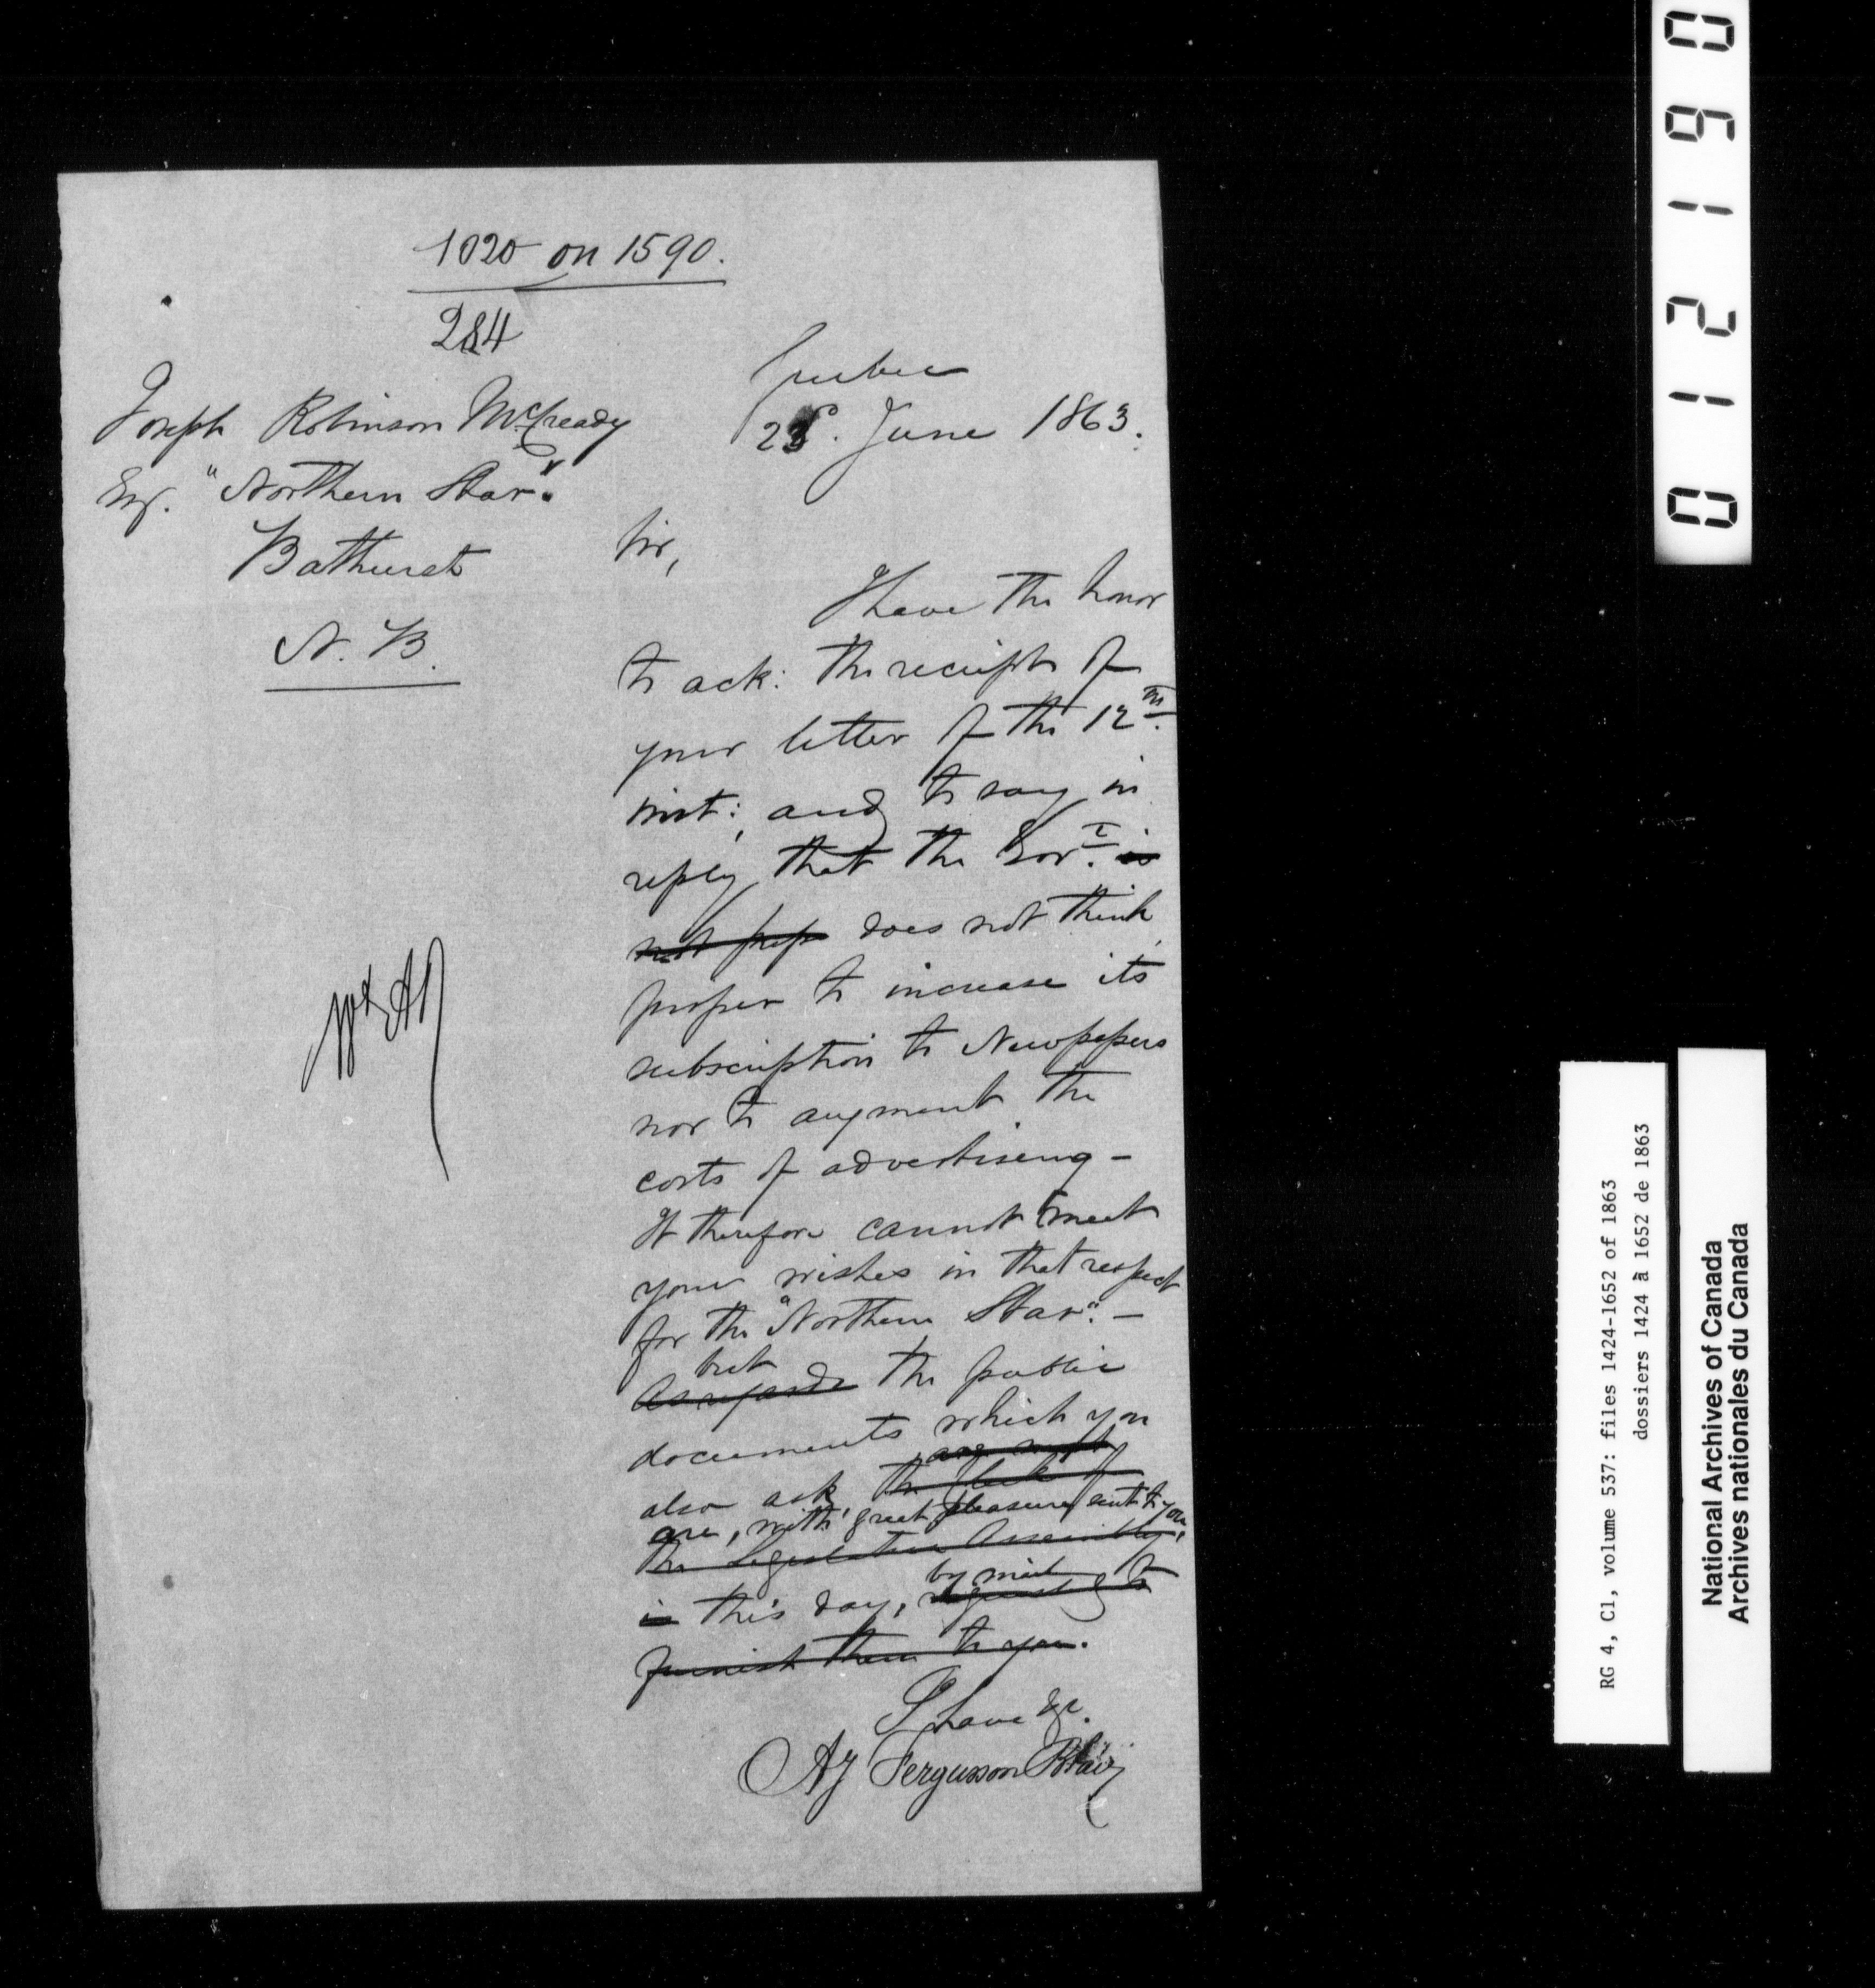 1020 on 1590.
284
Quebec
June 1863.
Joseph Robinson McCready
Esq. "Northern Star".
Bathurst
N. B.
Sir,
I have the honor
to ack: the receipt of
your letter of the 12th
inst: and to say in
reply that the Govt. is
not prep does not think
proper to increase its
subscription to Newspapers
nor to augment the
costs of advertising -
It therefore cannot meet
your wishes in that respect
for the "Northern Star". -
but
As regards the public
documents which you
also ask, the Clerk of
are, with great pleasure, sent to you,
the Legislative Assembly,
by mail
is this day, requested to
furnish them to you.
I have &c.
AJ Fergusson Blair
012190
RG 4, C1, volume 537: files 1424-1652 of 1863
dossiers 1424 à 1652 de 1863
National Archives of Canada
Archives nationales du Canada